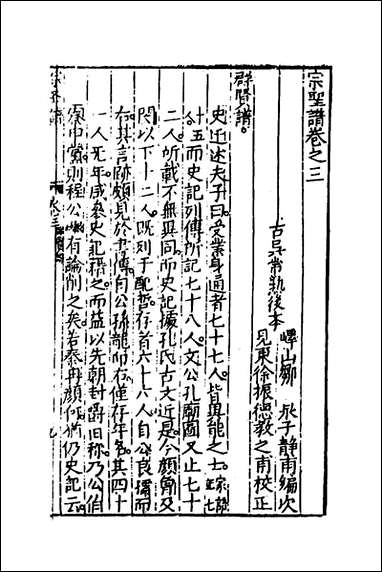 宗聖譜卷之三
古吳常熟後學
嶧山鄒泉子靜甫編次
見東徐振德敎之甫校正
群賢譜
史迁述夫子曰受業身通者七十七人皆異能之士家語七
十五而史記列傳所記七十八人文公孔廟圖又止七十
二人所載不無異同而史記據孔氏古文近是今顏曾及
閔以下十二人既列于配哲存首六十八人自公良孺而
存其言跡頗見於書傳自公孫龍而右僅存年名其四十
一人无年咸参史記籍之而益以先朝封爵旧称乃公伯
寮中黨則程公有論削之矣若秦冉顏何猶仍史記云